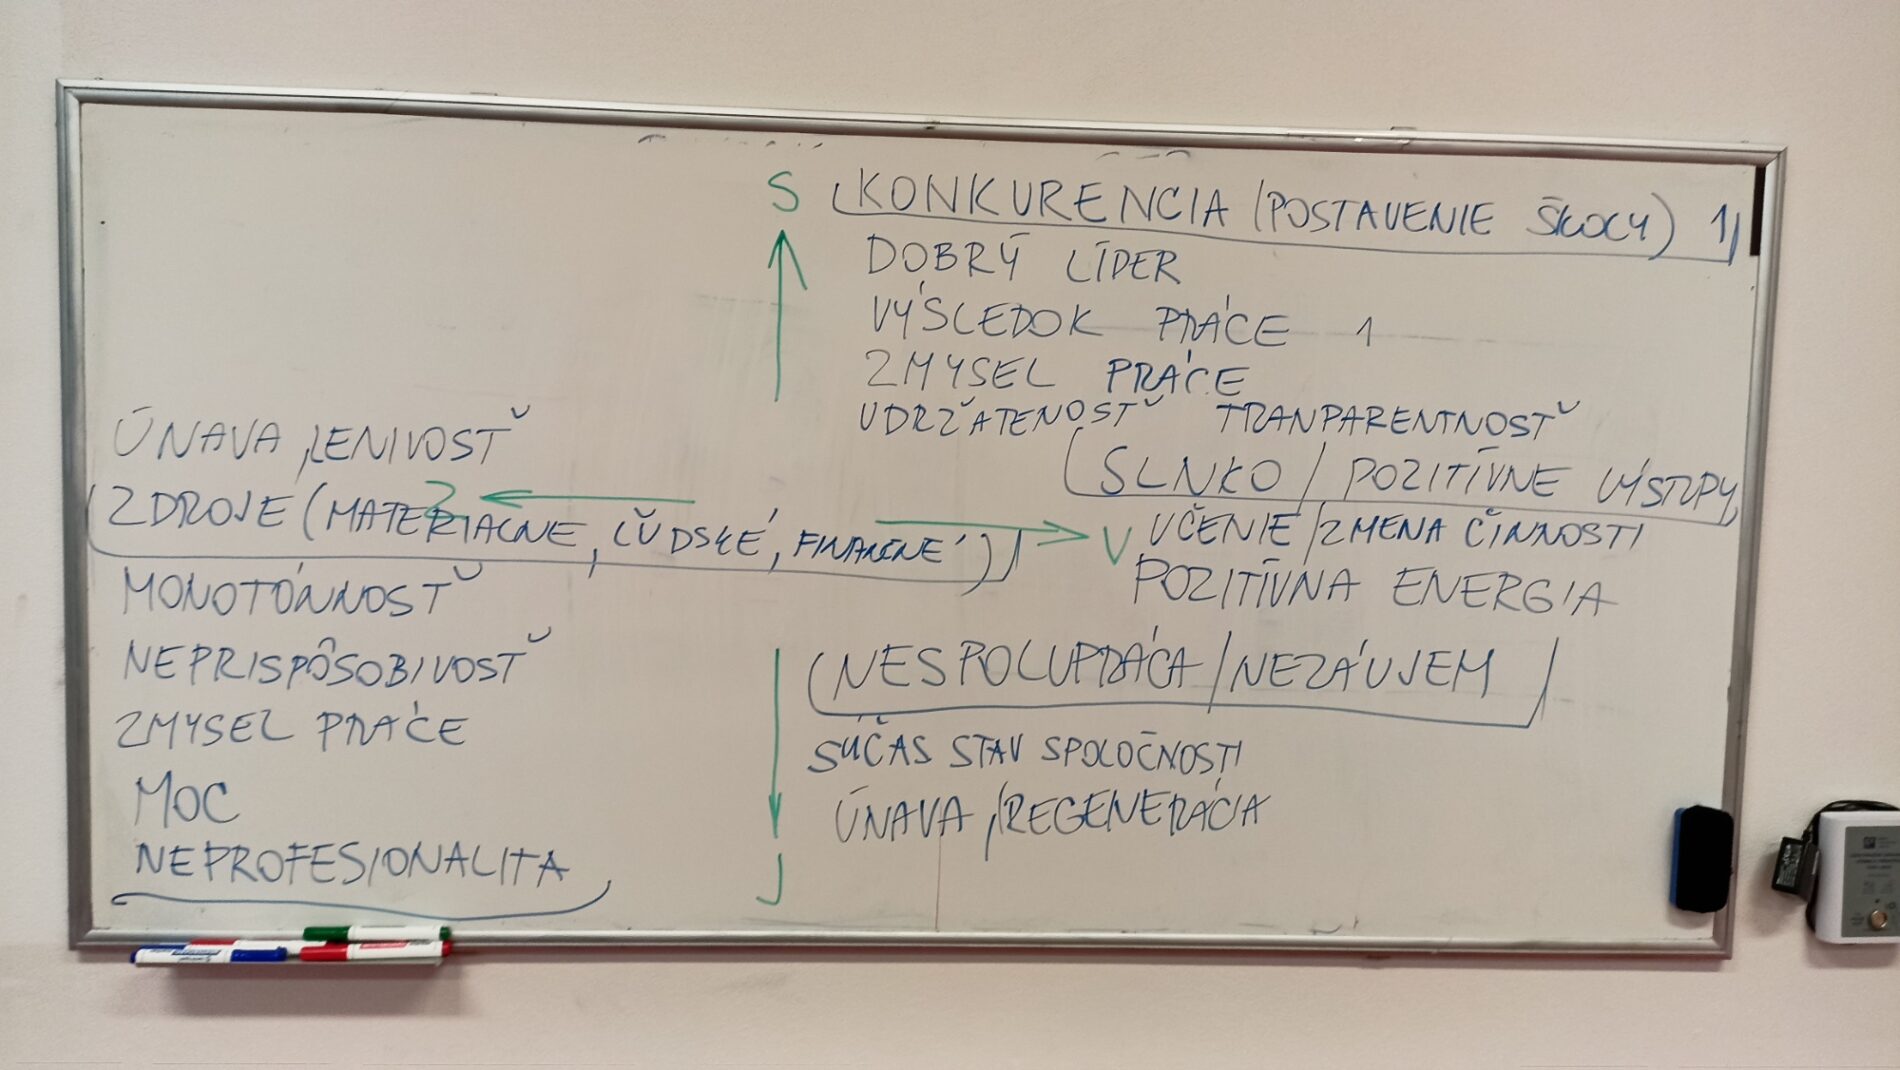 S
KONKURENCIA (POSTAVENIE ŠKOLY) 1
DOBRÝ LÍDER
VÝSLEDOK PRÁCE 1
ZMYSEL PRÁCE
UDRŽATENOSŤ TRANPARENTNOSŤ
SLNKO / POZITÍVNE VÝSTUPY
V UČENIE / ZMENA ČINNOSTI
POZITÍVNA ENERGIA
ÚNAVA, LENIVOSŤ
Z
ZDROJE (MATERIALNE, ĽUDSKÉ, FINANČNÉ)
MONOTÓNNOSŤ
NEPRISPÔSOBIVOSŤ
ZMYSEL PRÁCE
MOC
NEPROFESIONALITA
NESPOLUPRÁCA / NEZÁUJEM
SÚČAS STAV SPOLOČNOSTI
ÚNAVA, REGENERÁCIA
J